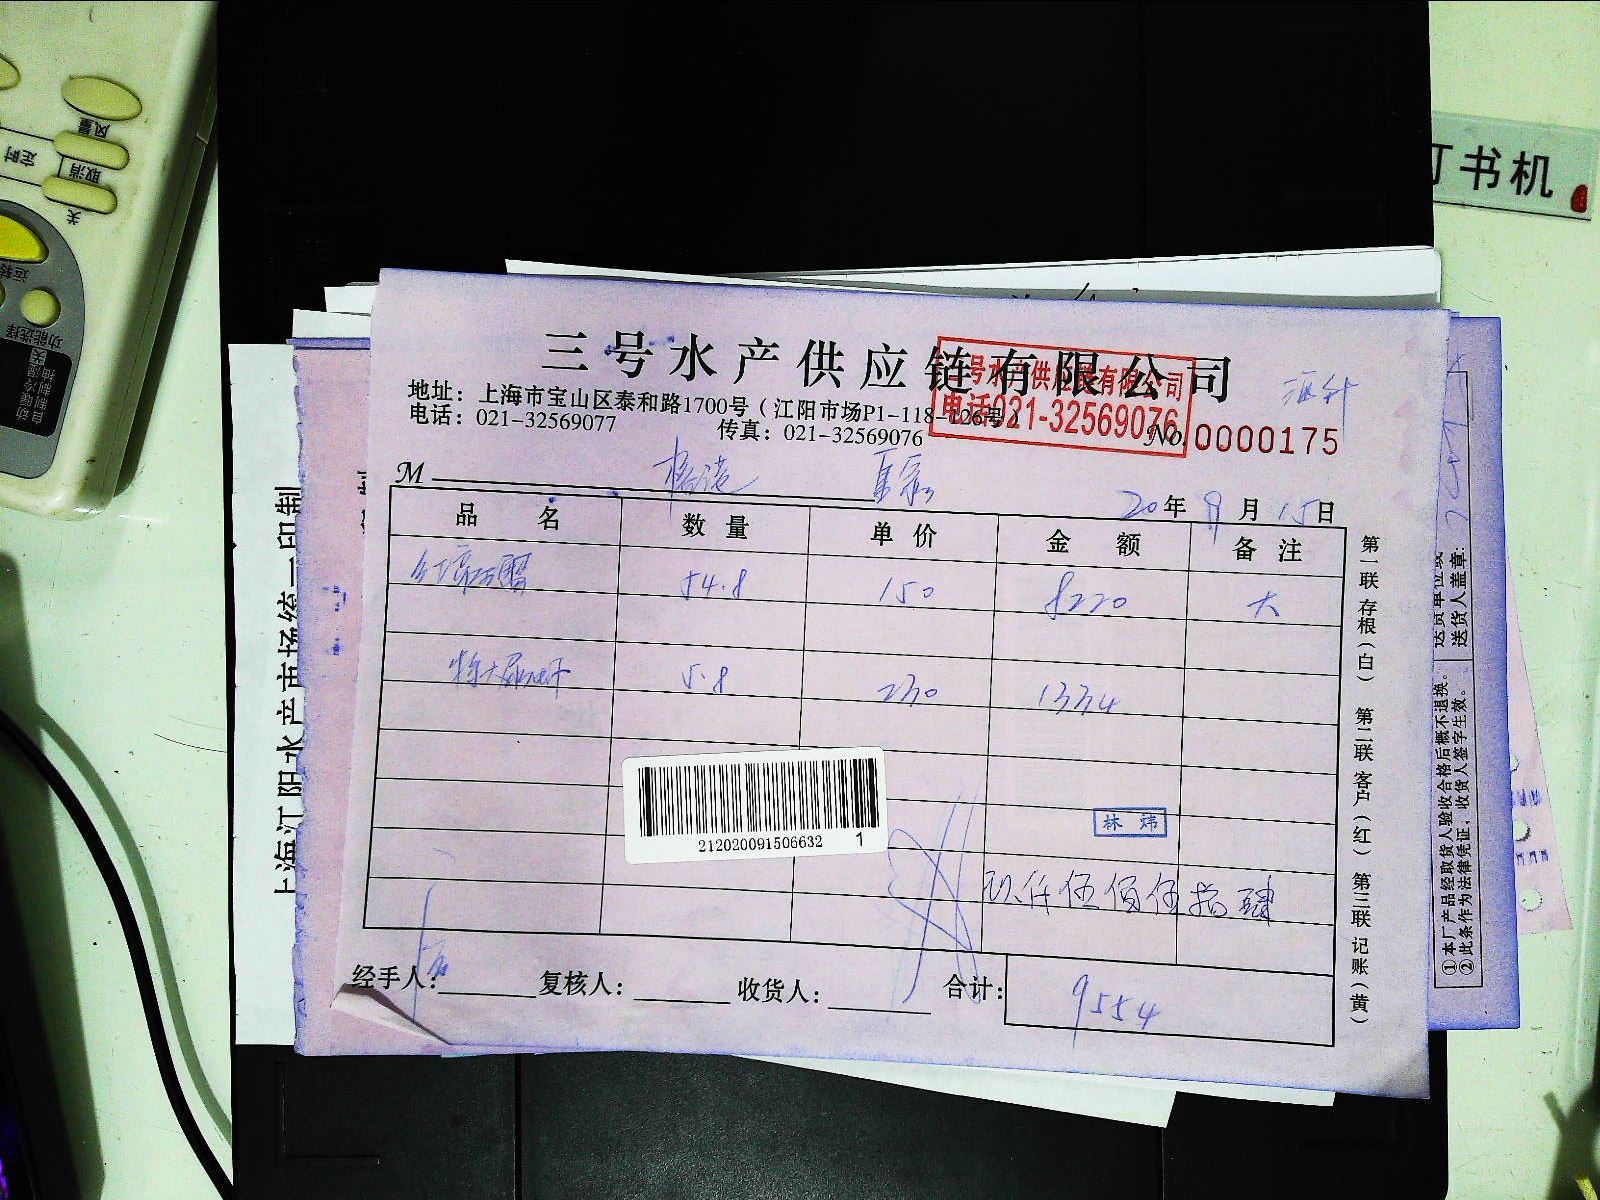 风量
定时
取消
关
运转
功能选择
自动
制暖
制冷
抽湿
送风
订书机
三号水产供应链有限公司
地址：上海市宝山区泰和路1700号（江阳市场P1-118-126号）
电话：021-32569077 传真：021-32569076
三号水产供应链有限公司
电话021-32569076
No. 0000175
M
20年 9月 15日
品名 数量 单价 金额 备注
54.8 150 8220 大
特大 5.8 230 1334
林炜
212020091506632 1
玖仟伍佰伍拾肆
经手人： 复核人： 收货人： 合计： 9554
第一联 存根（白） 第二联 客户（红） 第三联 记账（黄）
上海江阳水产市场统一印制
送货人盖章：
①本厂产品经取货人验收合格后概不退换。
②此条作为法律凭证，收货人签字生效。